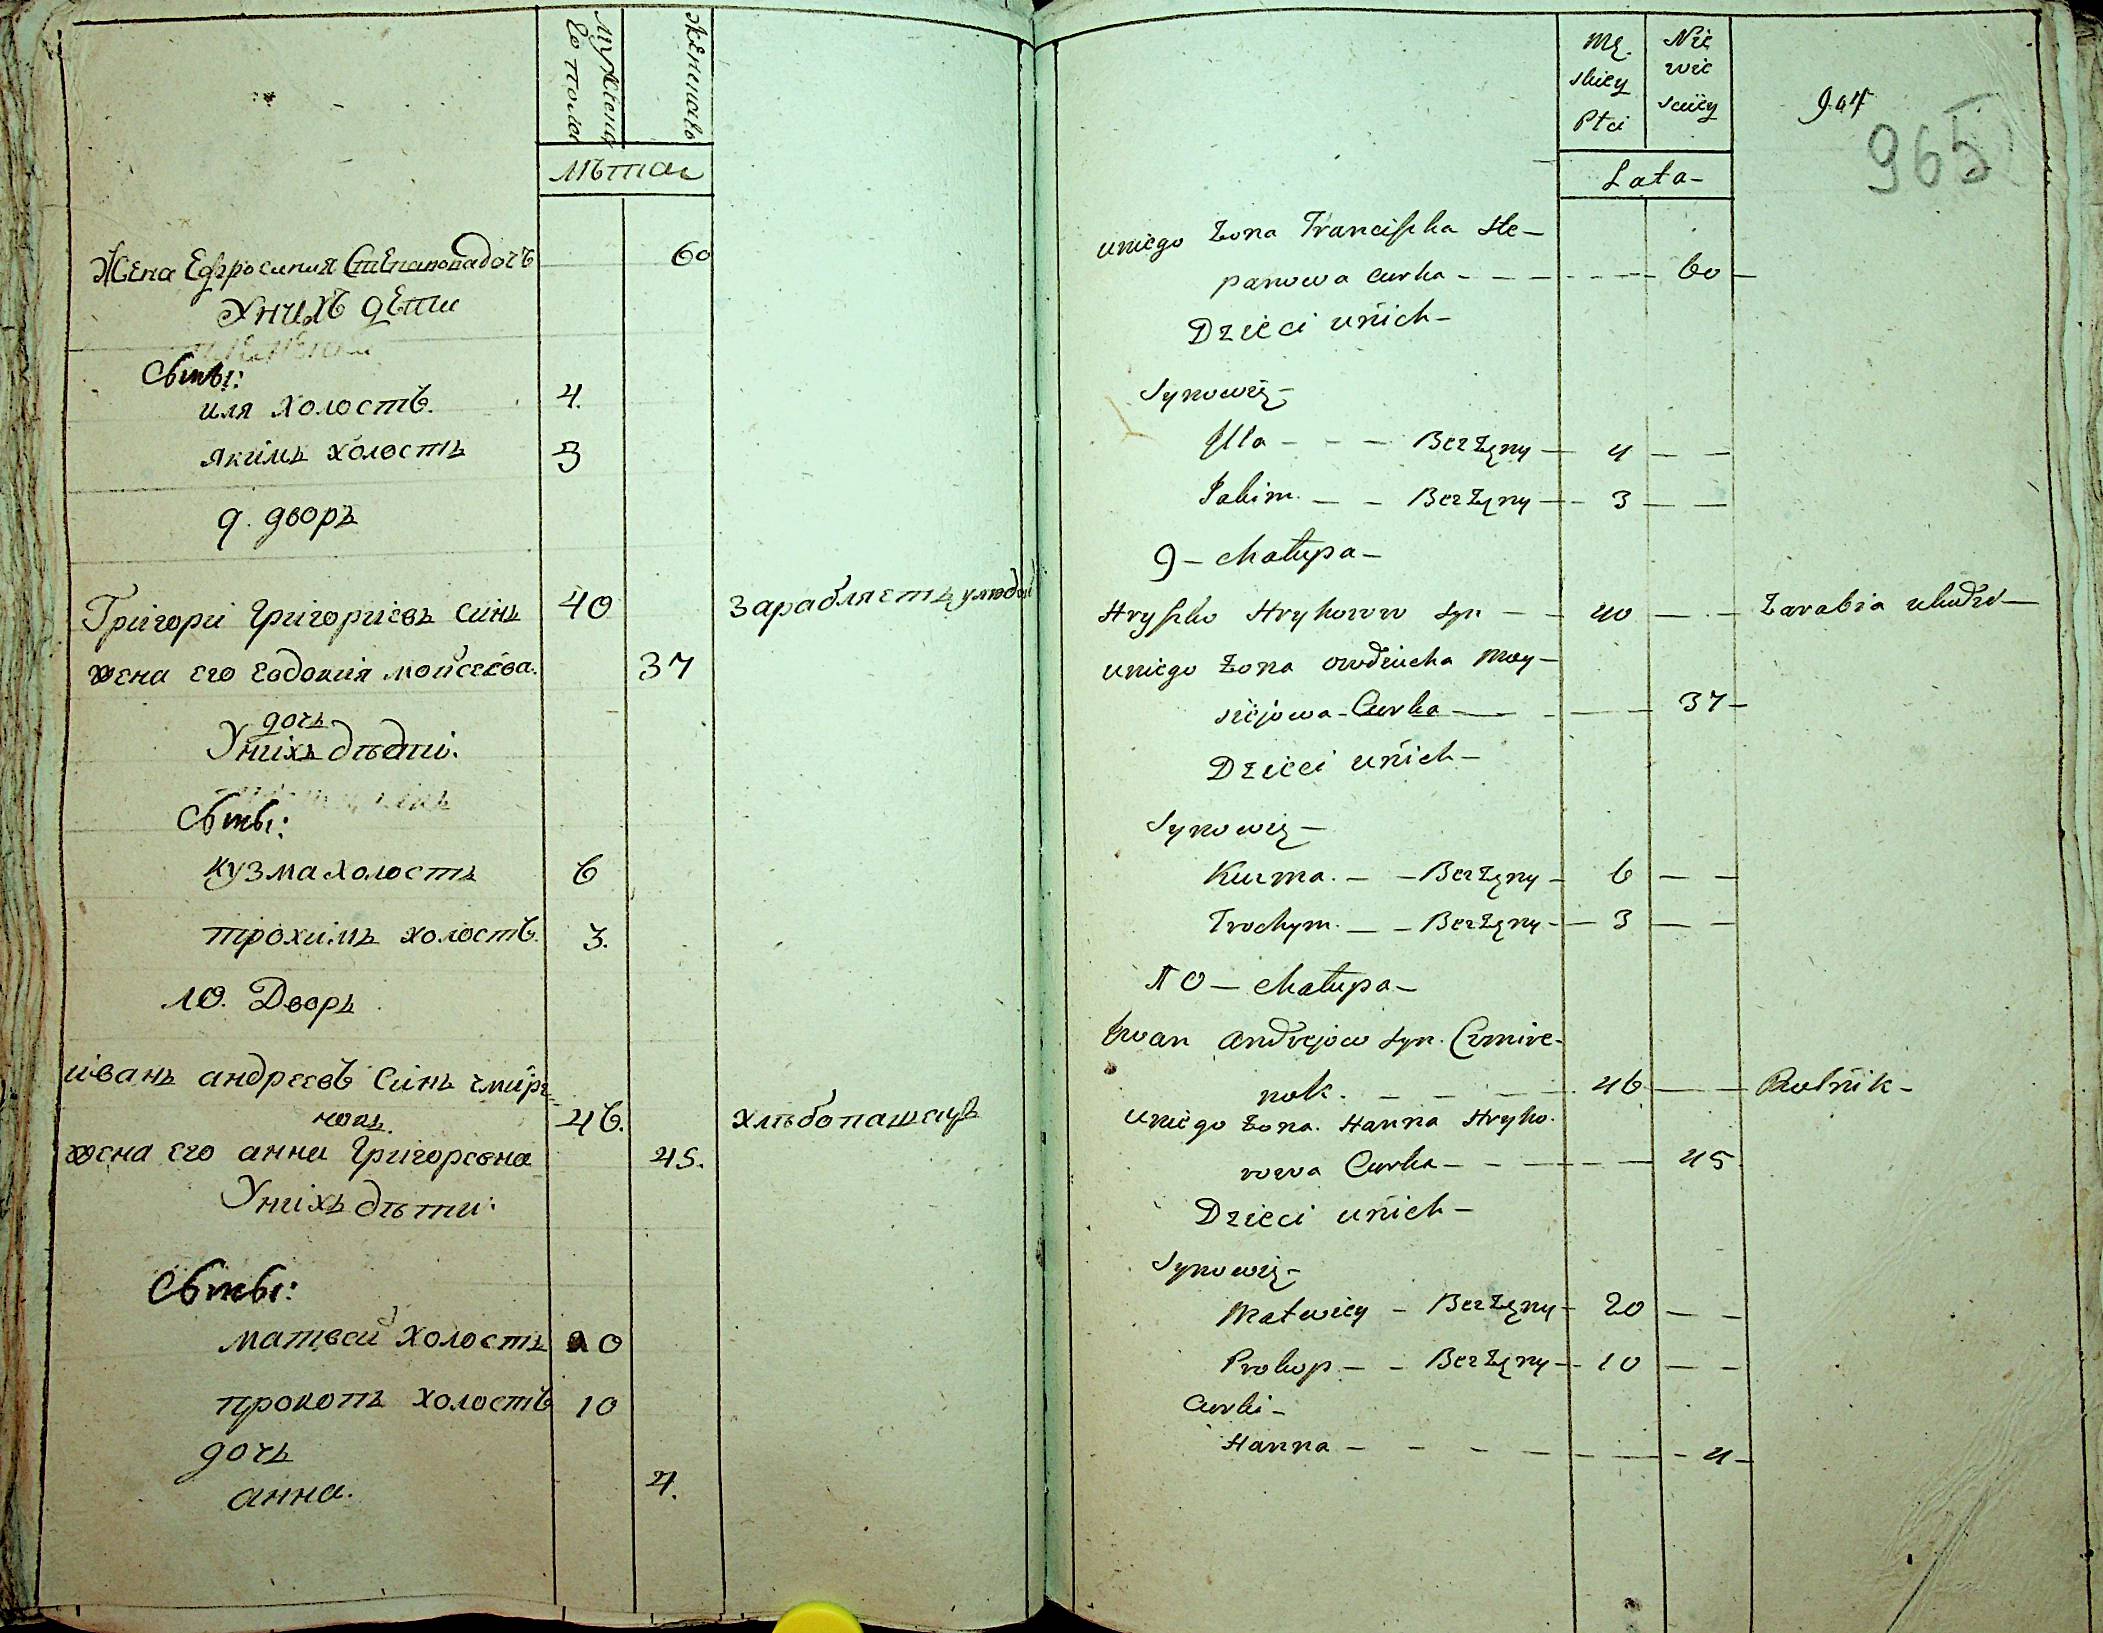 Мужеска
го полу
Женскаго
лѣта
Жена Ефросиния Степанова дочъ 60
Унихъ дети
Сыны:
иля холостъ. 4.
якимъ холостъ 3
9. дворъ
Григори Григориевъ синъ 40 зарабляетъ улюдей
жена его евдокия мойсеева. 37
дочь
Унихъ дѣти.
Сыны:
кузма холостъ 6
трохимъ холостъ. 3.
10. Дворъ
иванъ андреевъ синъ чмире-
нокъ. 46. хлѣбопашецъ
жена его анна Григоревна 45.
Унихъ дѣти:
Сыны:
матвей холостъ 20
прокопъ холостъ 10
дочь
анна. 4.
Mę-
skiey
Płci
Nie
wie
sciey
964
965
Lata-
uniego Żona Franciszka Ste-
panowa Curka - - - - 60 -
Dzieci unich-
Synowie-
Illa - - - Bezżęny - 4 - -
Jakim. - - Bezżęny - 3 - -
9 - Chałupa -
Hryszko Hryhorow Syn - - 40 - - Zarabia uludzi -
uniego Żona Owdiucha Moy-
siejowa - Curka - - - 37 -
Dzieci unich -
Synowie -
Kuzma. - - Bezżęny - 6 - -
Trochym. - - Bezżęny - 3 - -
10 - Chałupa -
Iwan Andrejow Syn. Czmire-
nok. - - - - 46 - - Rolnik -
uniego Żona. Hanna Hryho-
rowa Curka - - - - 45
Dzieci unich -
Synowie -
Matwiey - Bezżęny - 20 - -
Prokop - - Bezżęny - 10 - -
Curki -
Hanna - - - - - - 4 -